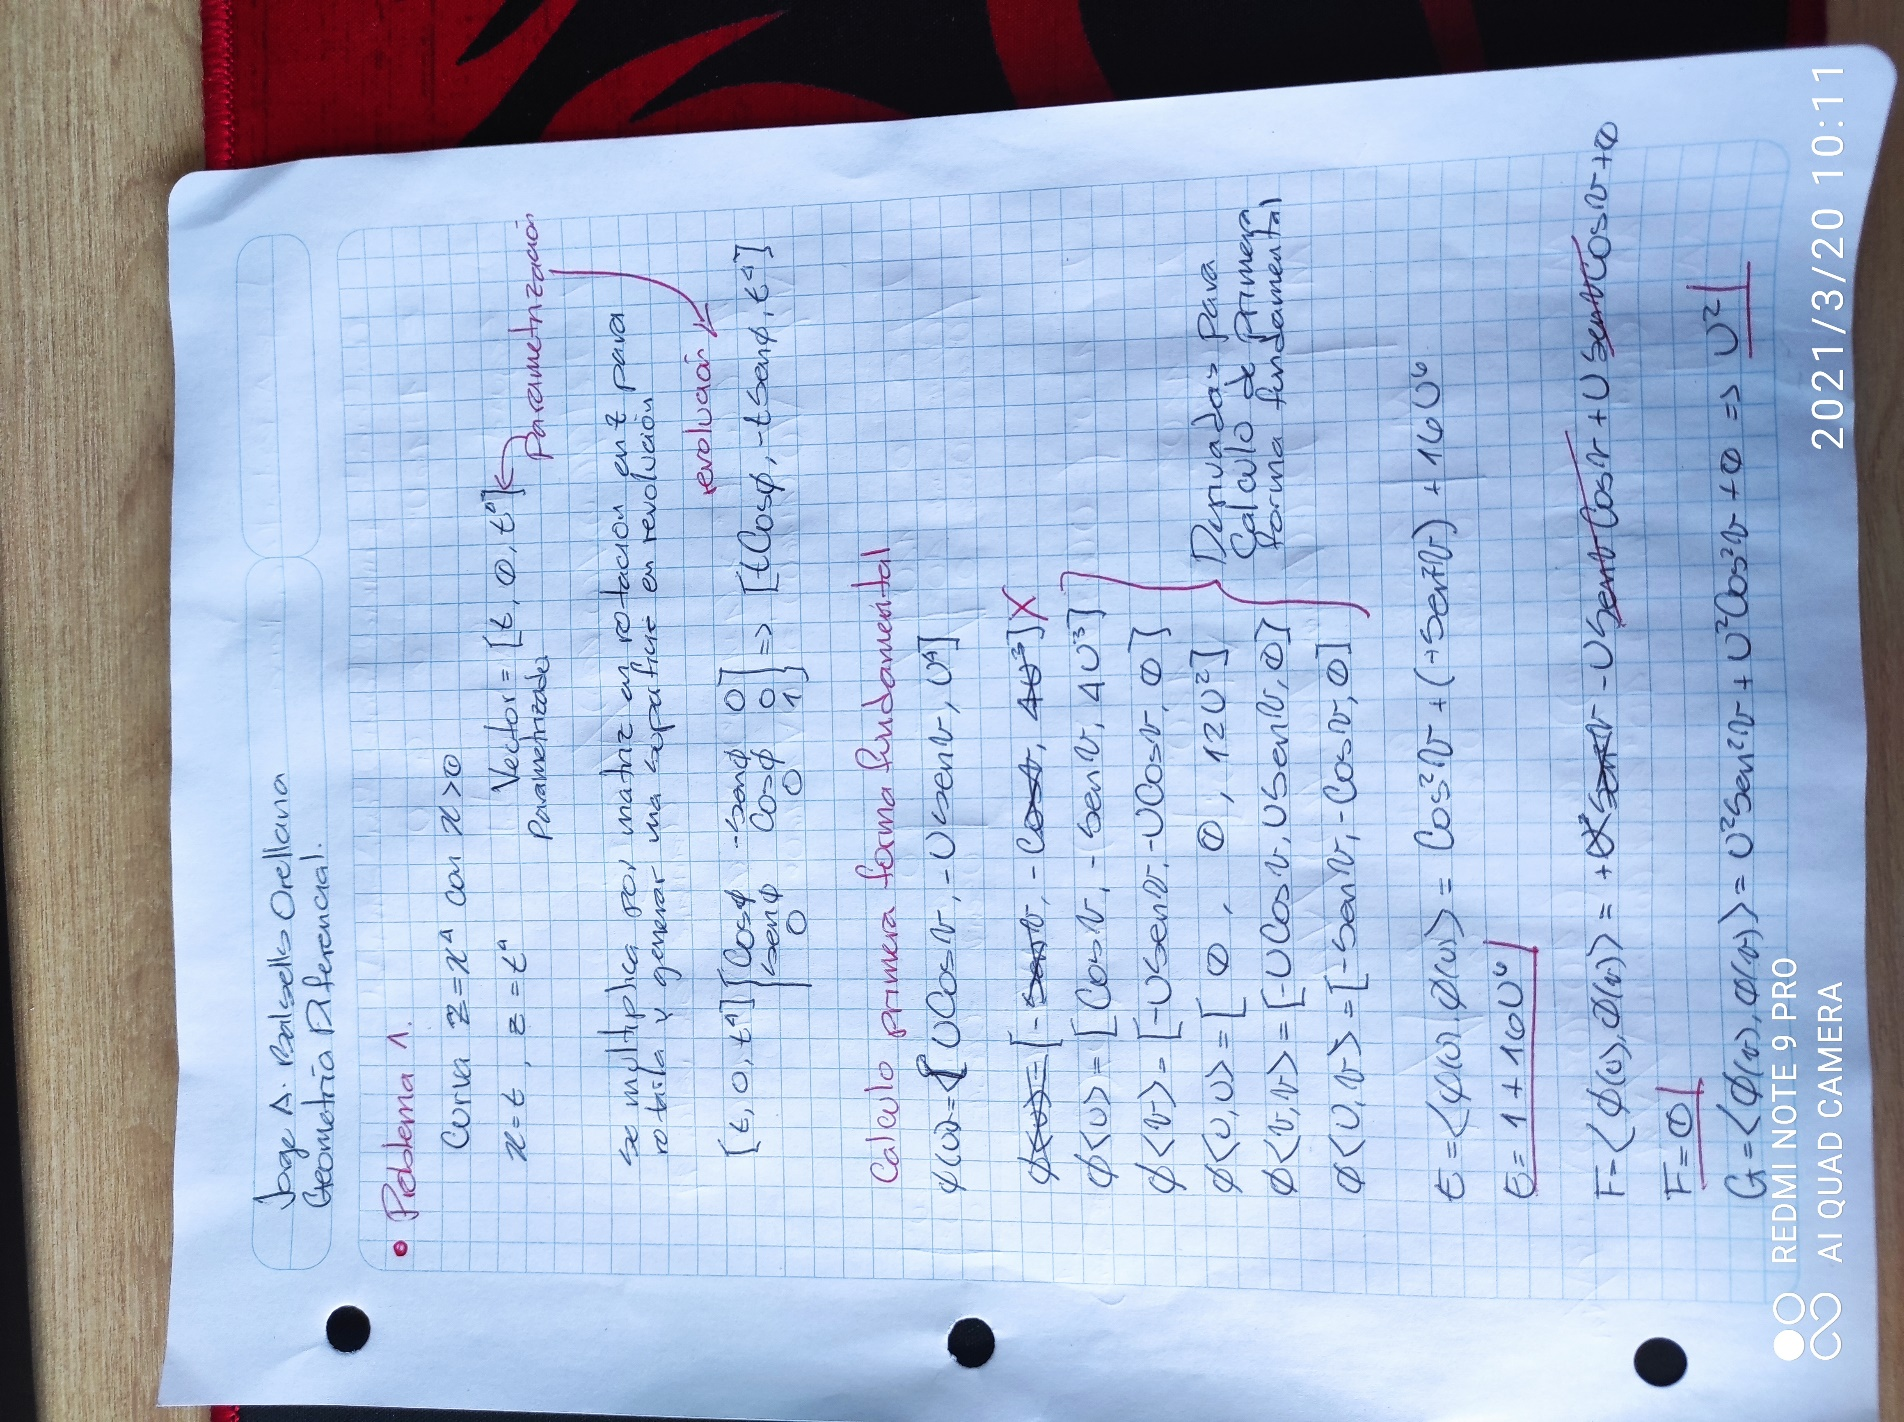 Jorge A. Balsells Orellana
Geometría Diferencial.
• Problema 1.
Curva z = x⁴ con x > 0
x = t , z = t⁴
Vector = [t, 0, t⁴]
Parametrizado
Parametrización
se multiplica por matriz en rotación en z para
rotarla y generar una superficie en revolución
revolución
[t, 0, t⁴] [Cosφ -senφ 0
senφ Cosφ 0
0 0 1] => [tCosφ, -tsenφ, t⁴]
Calculo primera forma fundamental
φ(u,v) = [UCosv, -Usenv, U⁴]
φ<u> = [-senv, -Cosv, 4U³] X
φ<u> = [Cosv, -senv, 4U³]
φ<v> = [-USenv, -UCosv, 0]
φ<u,u> = [0, 0, 12U²]
φ<v,v> = [-UCosv, USenv, 0]
φ<u,v> = [-senv, -Cosv, 0]
Derivadas para
Calculo de Primera
forma fundamental
E = <φ(u), φ(u)> = Cos²v + (+Sen²v) + 16U⁶
E = 1 + 16U⁶
F = <φ(u), φ(v)> = + - USenv Cosv + U Senv Cosv + 0
F = 0
G = <φ(v), φ(v)> = U²Sen²v + U²Cos²v + 0 => U²
REDMI NOTE 9 PRO
AI QUAD CAMERA
2021/3/20 10:11